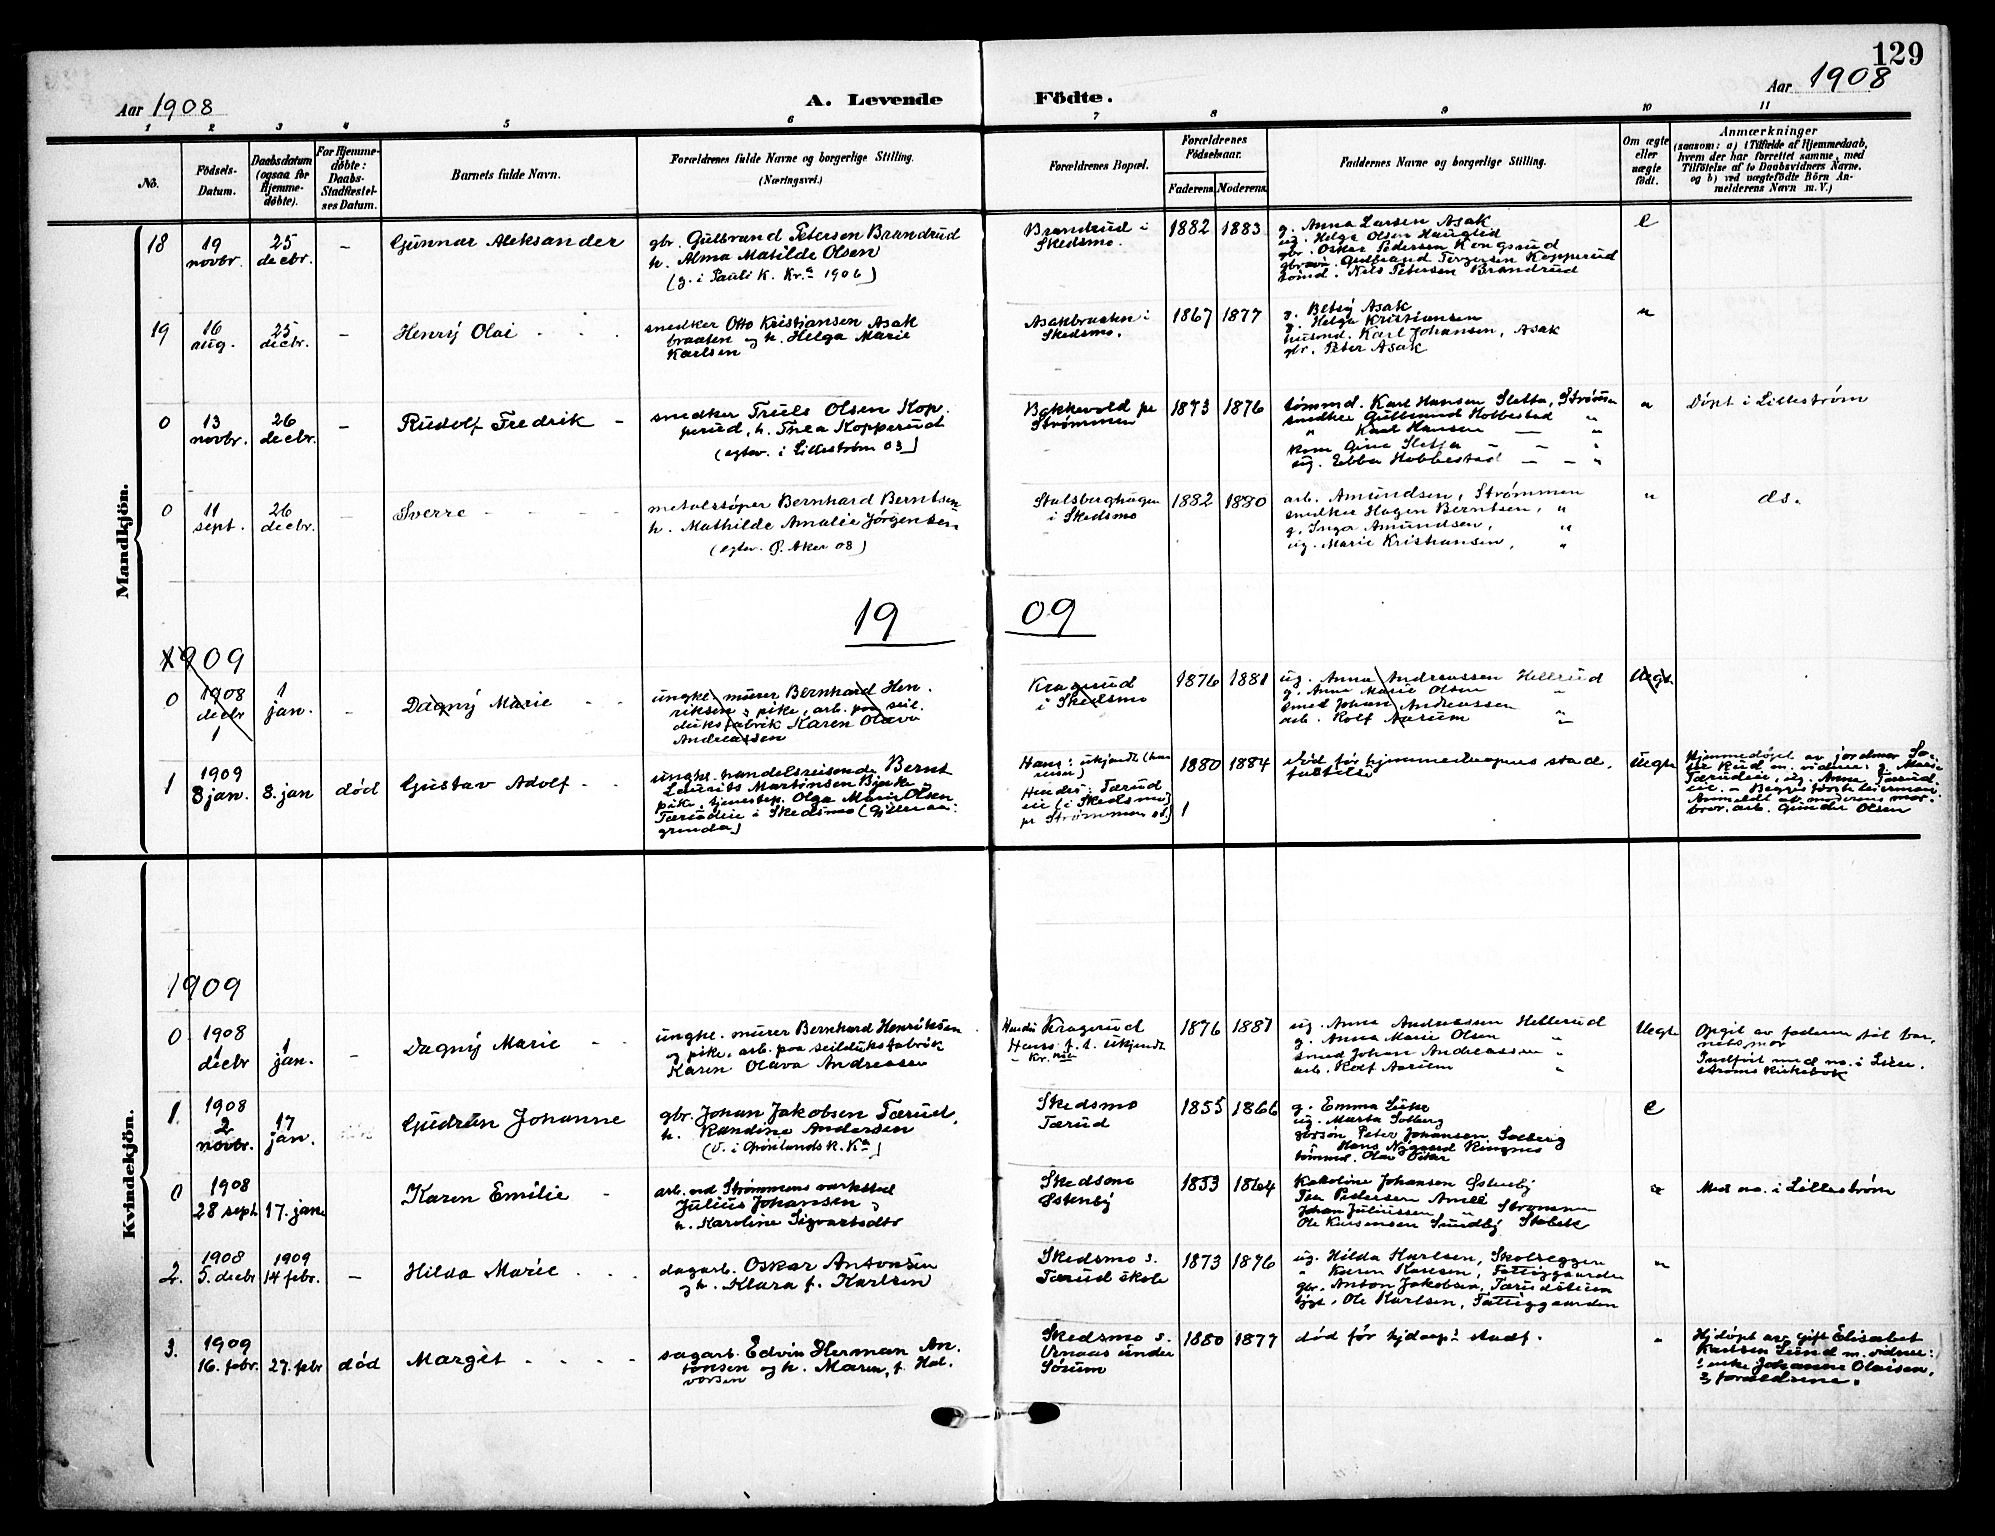 129
Aar 1908
A. Levende Födte.
Aar 1908
1 2 3 4 5 6 7 8 9 10 11
No.
Födsels-Datum.
Daabsdatum (ogsaa for Hjemmedöbte).
For Hjemmedöbte: Daabs-Stadfestelses Datum.
Barnets fulde Navn.
Forældrenes fulde Navne og borgerlige Stilling.
(Næringsvei.)
Forældrenes Bopæl.
Forældrenes Födselsaar.
Faderens. Moderens.
Faddernes Navne og borgerlige Stilling.
Om ægte eller uægte födt.
Anmærkninger
(saasom: a) i Tilfælde af Hjemmedaab, hvem der har forrettet samme, med Tilföielse af to Daabsvidners Navne. og b) ved uægtefödte Börn Anmelderens Navn m. V.)
Mandkjön.
18
19 novbr.
25 decbr.
–
Gunnar Aleksander
gbr. Gulbrand Petersen Brandrud
h. Alma Matilde Olsen
(g. i Pauli K. Kr.a 1906)
Brandrud i
Skedsmo.
1882 1883
g. Anna Larsen Asak
ug. Helga Olsen Hauglid
gbr. Oskar Pedersen Kongsrud
Gulbrand Torgersen Kopperud
tømd. Nils Petersen Brandrud
e
19
16 aug.
25 decbr.
–
Henry Olai
snedker Otto Kristiansen Asak
braaten og h. Helga Marie
Karlsen
Asakbraaten i
Skedsmo.
1867 1877
g. Betsy Asak
g. Helga Kristiansen
husmd. Karl Johansen, Asak
gbr. Peter Asak
"
0
13 novbr.
26 decbr.
–
Rudolf Fredrik
snedker Truls Olsen Kop-
perud, h. Thea Kopperud
(egtev. i Lillestrøm 03)
Bakkevold pr
Strømmen
1873 1876
tømmd. Karl Hansen Sletta, Strømmen
snedker Gulbrand Hobbestad "
" Karl Hansen — "
kone Gina Sletta — — "
ug. Ebba Hobbestad — — "
"
Døpt i Lillestrøm
0
11 sept.
26 decbr.
–
Sverre
metalstøper Bernhard Berntsen
h. Mathilde Amalie Jørgensen
(egtev. Ø. Aker 08)
Stalsberghagen
i Skedsmo
1882 1880
arb. Amundsen, Strømmen
snedker Hagen Berntsen, "
g. Inga Amundsen, "
ug. Marie Kristiansen, "
"
ds.
19 09
1909
0
1908 decbr 1
1 jan.
–
Dagny Marie
ungk. murer Bernhard Hen-
riksen, pike, arb. paa seil-
duksfabrik Karen Olava
Andreassen
Kragerud
i Skedsmo
1876 1881
ug. Anna Andreassen Hellerud
g. Anna Marie Olsen "
smed Johan Andreassen "
arb. Rolf Aarum "
Uegt.
1
1909 3 jan.
3. jan
død
Gustav Adolf
ungk. handelsreisende Bernt
Laurits Martinsen Bjerke
pike, tjenestep. Olga Marie Olsen
Tærudeie i Skedsmo
Hans: ukjendt
Hendes: Tærud
eie (i Skedsmo)
pr Strømmen
1880 1884
død før hjemmedaapens stad-
festelse
uegte
Hjemmedøpt av jordmor
Rud m. vidner: g.
Tærudeie, ug. Anna Tærud-
eie.
Anmeldt av moderens mor-
bror, arb. Olsen
Kvindekjön.
1909
0
1908 1 decbr
1 jan.
–
Dagny Marie
ungk. murer Bernhard Henriksen
og pike, arb. paa seilduksfabrik
Karen Olava Andreasen
Hendes Kragerud
Hans f. t. ukjendt
– Kr.nia
1876 1881
ug. Anna Andreassen Hellerud
g. Anna Marie Olsen "
smed Johan Andreassen "
arb. Rolf Aarum "
Uegte
Opgit av faderen til bar-
nets mor
Indført med no. i Lille-
strøms kirkebok
1.
1908 2 novbr.
17 jan.
Gudrun Johanne
gbr. Johan Jakobsen Tærud,
h. Randine Andersen
(v. i Grønlands K. Ka)
Skedsmo
Tærud
1855 1866
g. Emma Lake
ug. Marta Solberg
gbrsøn Peter Johansen Solberg
" Hans Nygaard Ringnes
tømmd. Olav Oskar
e
0
1908 28 sept
17. jan
Karen Emilie
arb. ved Strømmens verksted
Julius Johansen og
h. Karoline Sigvartsdtr
Skedsmo
Østenby
1853 1864
Karoline Johansen Østenby
Pedersen
Johan Juliussen " Strømmen
Ole Kursensen Sundby Stabek
"
Med no. i Lillestrøm
2.
1908 5. decbr
1909 14 febr.
–
Hilda Marie
dagarb. Oskar Antonsen
og h. Klara f. Karlsen
Skedsmo s.
Tærud skole
1873 1876
ug. Hilda Karlsen, Skolseggen
" Karen Karlsen, Fattiggaarden
gbr. Anton Jakobsen, Tærudslien
Ole Karlsen, Fattiggaarden
"
3.
1909 16. febr.
27. febr
død
Margit
sagarb. Edvin Herman An-
tonsen og h. Maren, f. Hal-
vorsen
Skedsmo s.
Vrnaas under
Sørum
1880 1877
død før hjdaaps stadf.
"
Hjdøpt av gift Elisabet
Karlsen Lund m. vidner:
enke Johanne Olaisen,
og forældrene.